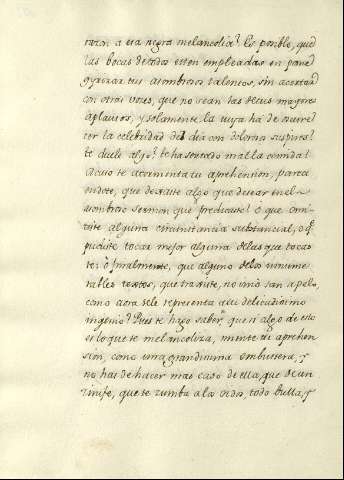 razon a esa negra melancolia? Es posible, que
las bocas de todos estèn empleadas en pane
gyrizar tus asombrosos talentos, sin acertar
con otras voces, que no sean las de tus mayores
aplausos, y solamente la tuya ha de obscure
cer la celebridad del dia con dolorosos suspiros?
te duele algo? te ha sentado mal la comida?
Acaso te atormenta tu aprehension, pare
ciendote, que dexaste algo que desear en el
asombroso sermon que predicaste? ò que omi
tiste alguna circunstancia substancial, ò q.e
pudiste tocar mejor alguna de las que tocas
te? ò finalmente, que alguno de los innume
rables textos, que traxiste, no vinò tan a pelo,
como aora se le representa a tu delicadisimo
ingenio? Pues te hago saber, que si algo de esto
es lo que te melancoliza, miente tu aprehen
sion, como una grandisima embustera, y
no has de hacer mas caso de ella, que de un
zinife, que te zumba a los oidos, todo bulla, y